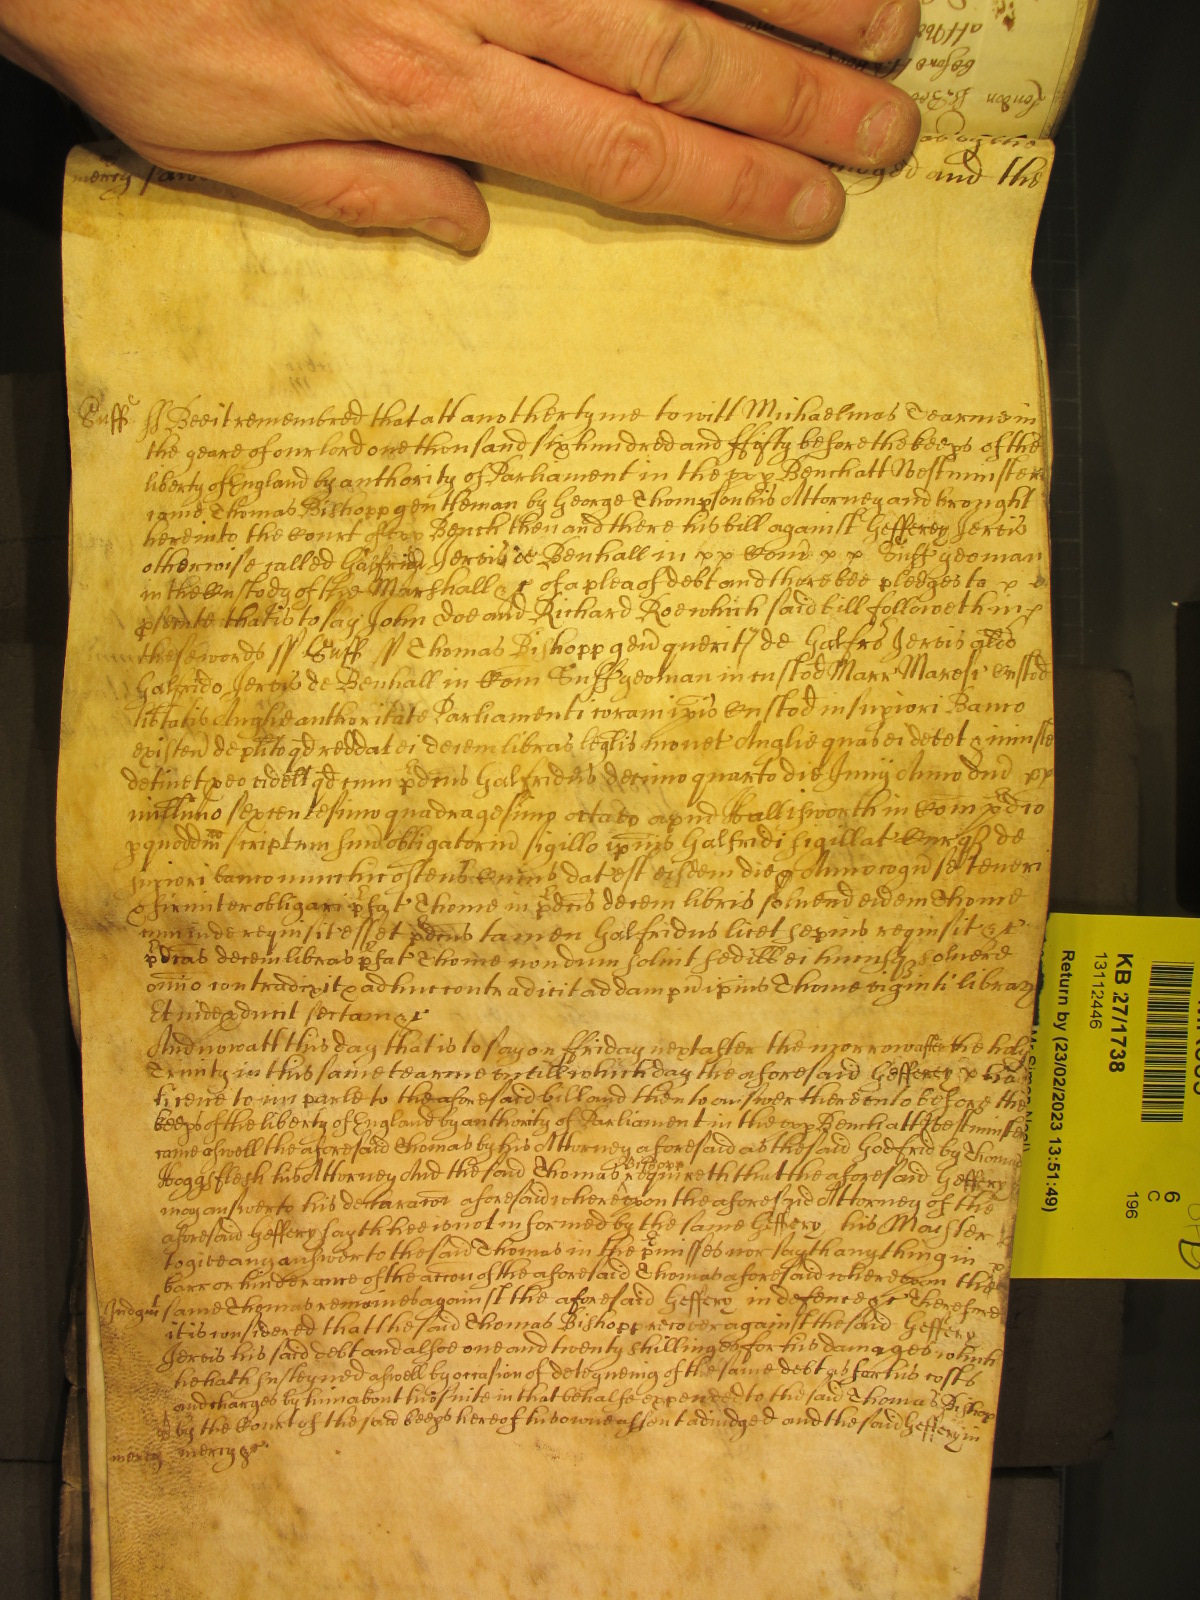 mercy
ged and the
Suffc ss Bee it remembred that att another tyme to witt Michaelmas Tearme in
the yeare of our lord one thousand six hundred and ffifty before the keeps of the
liberty of England by authority of Parliament in the upp Bench att Westminster
came Thomas Bishopp gentleman by George Thompson his Attorney and brought
here into the Court of upp Bench then and there his bill against Gefferey Jervis
otherwise called Galfrid Jervis de Benhall in Com Suff yeoman
in the Custody of the Marshall &c of a plea of debt and there bee pledges to
psecute that is to say John Doe and Richard Roe which said bill followeth in
these words ss Suff ss Thomas Bishopp gen querit de Galfro Jervis alio
Galfrido Jervis de Benhall in Com Suff yeoman in custod Marr Maresc custod
libtatis Anglie authoritate Parliamenti coram ipis Custod in supiori Banco
existen de plito qd reddat ei decem libras leglis monet Anglie quas ei debet & iniuste
detinet p eo videlt qd cum pdcus Galfridus decimo quarto die Junij Anno Dnd
millimo sexcentesimo quadragesimo octavo apud Hallisworth in Com pdco
p quoddm scriptum suu obligatoriu sigillo ipius Galfridi sigillat Curqz de
supiori banco nunc hic ostens cuius dat est eisdem die & Anno cogn se teneri
& firmiter obligari pfat Thome in pdcis decem libris solvend eidem Thome
cum inde requisit esset pdcus tamen Galfridus licet sepius requisit &c
pdcas decem libras pfat Thome nondum solvit sed ill ei hucusqz solvere
omio contradixit & adhuc contradicit ad dampn ipius Thome viginti librar
Et inde pducit sectam &c
And now att this day that is to say on ffriday next after the morrow after the holy
Trinity in this same tearme untill which day the aforesaid Gefferey
licence to imparle to the aforesaid bill and then to answer thereunto before the
keeps of the liberty of England by authority of Parliament in the upp Bench att Westminster
came aswell the aforesaid Thomas by his Attorney aforesaid as the said Godfrid by Thomas
Hoggsflesh his Attorney And the said Thomas Bishopp requireth that the aforesaid Geffery
may answer to his declaracon aforesaid whereupon the aforesaid Attorney of the
aforesaid Geffery sayth hee is not informed by the same Geffery his Master
to give any answer to the said Thomas in the pmisses nor sayth any thing in
barr or hinderance of the accon of the aforesaid Thomas aforesaid whereupon the
Judgmt same Thomas remaines against the aforesaid Geffery in defence &c Therefore
it is considered that the said Thomas Bishopp recover against the said Geffery
Jervis his said debt and alsoe one and twenty shillinges for his damages which
he hath susteyned aswell by occasion of deteyneing of the same debt as for his costs
and charges by him about his suite in that behalfe expended to the said Thomas Bishop
by the Court of the said keeps here of his owne assent adiudged and the said Geffery in
mercy mercy &c
KB 27/1738
13112446
Return by (23/02/2023 13:51:49)
6
C
196